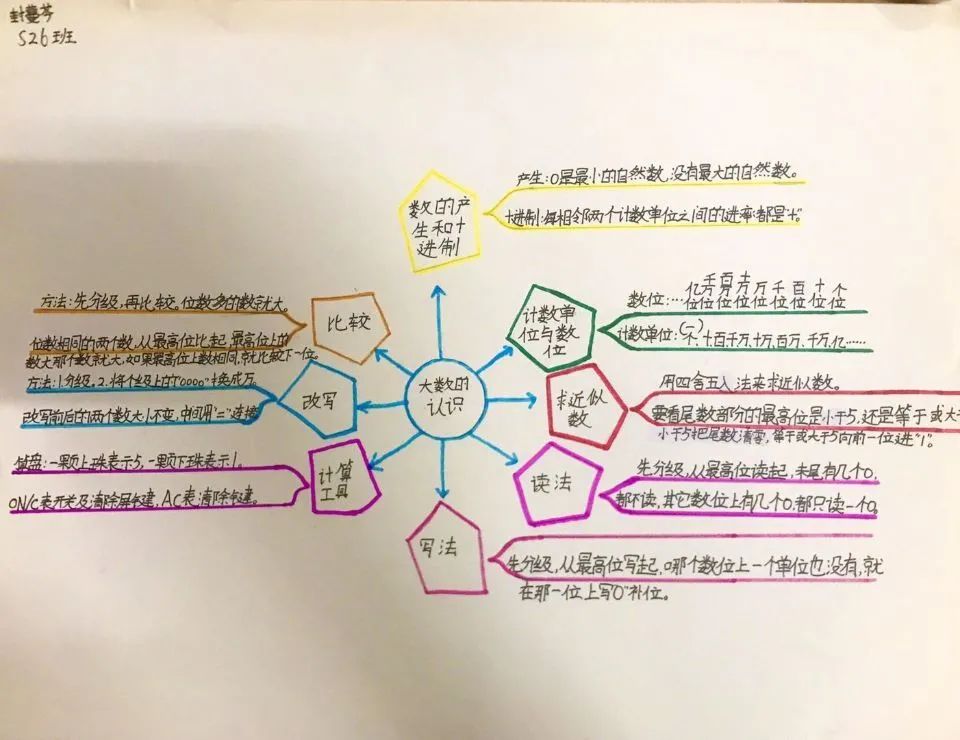 封蔓芩
526班
产生:0是最小的自然数,没有最大的自然数。
数的产
生和十
进制
十进制:每相邻两个计数单位之间的进率都是"十"。
方法:先分级,再比较。位数多的数就大。
比较
位数相同的两个数,从最高位比起,最高位上的
数大那个数就大。如果最高位上数相同,就比较下一位。
计数单
位与数
位
数位:…亿位 千万位 百万位 十万位 万位 千位 百位 十位 个位
计数单位:(一)个、十、百、千、万、十万、百万、千万、亿……
大数的
认识
方法:1.分级,2.将个级上的"0000"换成万。
改写
改写前后的两个数大小不变,中间用"="连接
求近似
数
用四舍五入法来求近似数。
要看尾数部分的最高位是小于5,还是等于或大于
小于5把尾数清零,等于或大于5向前一位进"1"。
算盘:一颗上珠表示5,一颗下珠表示1。
计算
工具
ON/C表开关及清除屏键,AC表清除键。
读法
先分级,从最高位读起,末尾有几个0,
都不读,其它数位上有几个0,都只读一个0。
写法
先分级,从最高位写起,哪个数位上一个单位也没有,就
在那一位上写"0"补位。